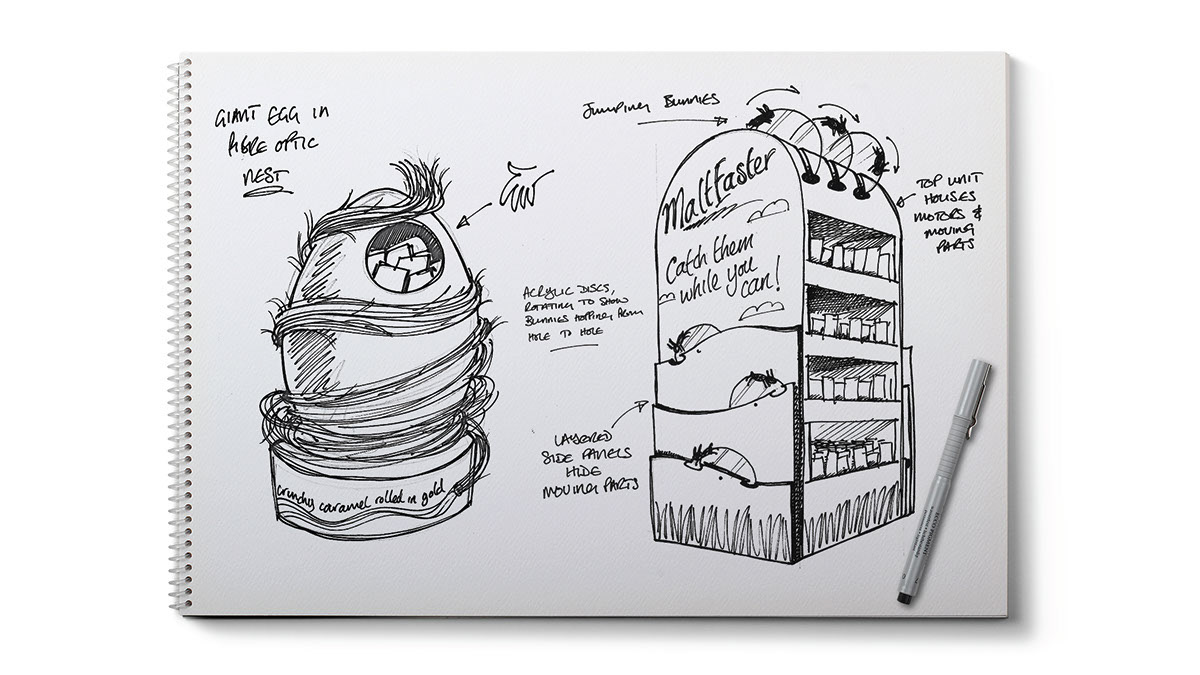 GIANT EGG IN
FIBRE OPTIC
NEST
crunchy caramel rolled in gold
ACRYLIC DISCS,
ROTATING TO SHOW
BUNNIES HOPPING FROM
HOLE TO HOLE
JUMPING BUNNIES
MaltEaster
Catch them
while you
can!
TOP UNIT
HOUSES
MOTORS &
MOVING
PARTS
LAYERED
SIDE PANELS
HIDE
MOVING PARTS